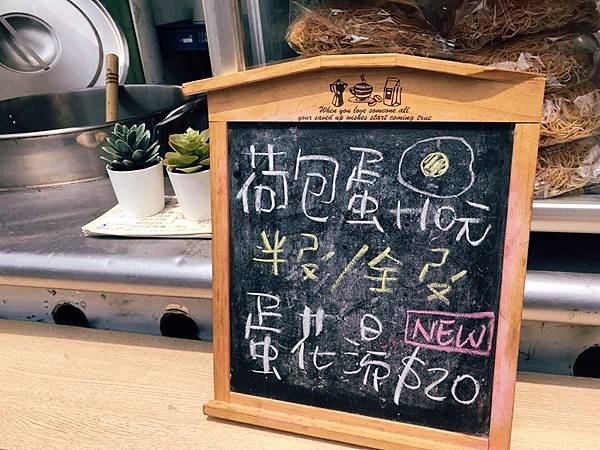 When you love someone all
your saved up wishes start coming true
荷包蛋+10元
半熟/全熟
蛋花湯 NEW
$20